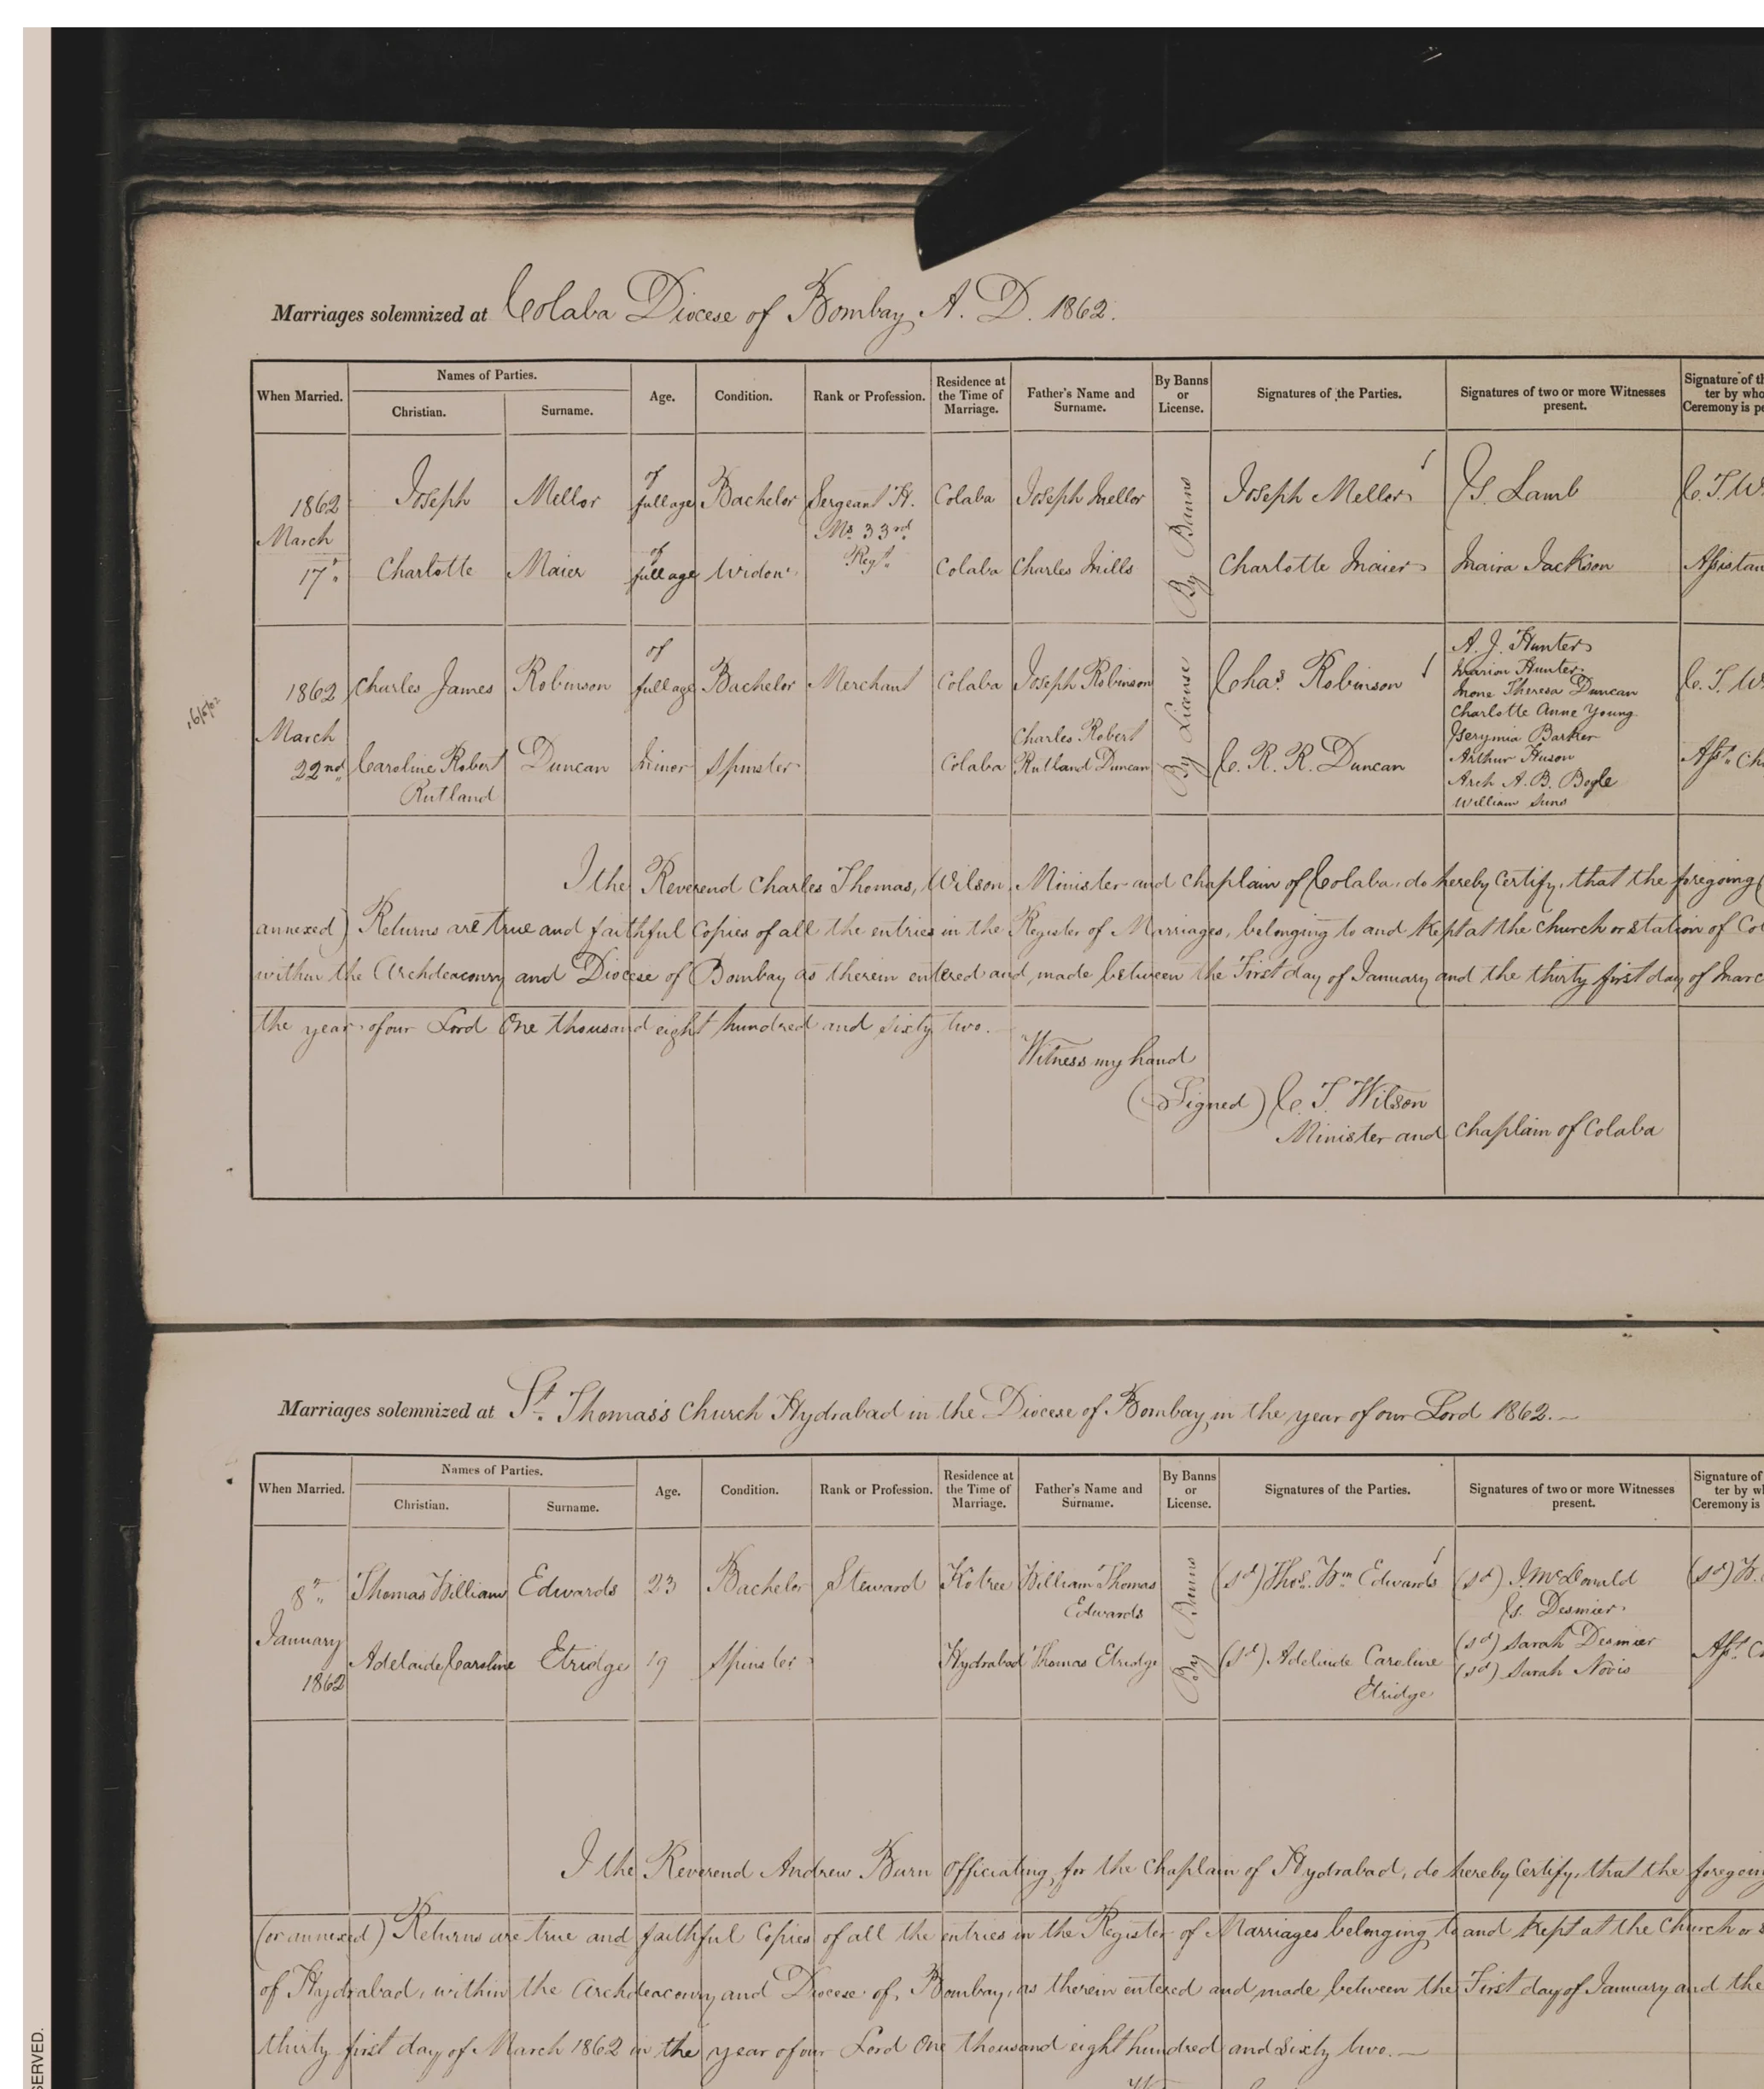 Marriages solemnized at Colaba Diocese of Bombay A. D. 1862.
When Married. Names of Parties. Age. Condition. Rank or Profession. Residence at the Time of Marriage. Father's Name and Surname. By Banns or License. Signatures of the Parties. Signatures of two or more Witnesses present. Signature of th
Christian. Surname. ter by who
Ceremony is pe
1862 Joseph Mellor of full age Bachelor Sergeant H. Colaba Joseph Mellor By Banns Joseph Mellor Js. Lamb C. T. W
March Ms. 33rd
17th Charlotte Maier of full age Widow Regt. Colaba Charles Mills Charlotte Maier Maira Jackson Assistan
1862 Charles James Robinson of full age Bachelor Merchant Colaba Joseph Robinson By License Chas. Robinson A. J. Hunter C. T. W
Marion Hunter
Theresa Duncan
Charlotte Anne Young
March Charles Robert Barker
22nd Caroline Robert Duncan Minor Spinster Colaba Rutland Duncan C. R. R. Duncan Arthur Huson Asst. Ch
Rutland Arch A. B. Bogle
William
16/5/02
I the Reverend Charles Thomas, Wilson, Minister and Chaplain of Colaba, do hereby Certify, that the foregoing (
annexed) Returns are true and faithful Copies of all the entries in the Register of Marriages, belonging to and Kept at the Church or Station of Col
within the Archdeaconry and Diocese of Bombay as therein entered and made between the First day of January and the thirty first day of Marc
the year of our Lord One thousand eight hundred and sixty two.
Witness my hand
(Signed) C. T. Wilson
Minister and Chaplain of Colaba
Marriages solemnized at St. Thomas's Church Hydrabad in the Diocese of Bombay, in the year of our Lord 1862.—
When Married. Names of Parties. Age. Condition. Rank or Profession. Residence at the Time of Marriage. Father's Name and Surname. By Banns or License. Signatures of the Parties. Signatures of two or more Witnesses present. Signature of
Christian. Surname. ter by wh
Ceremony is
8th Thomas William Edwards 23 Bachelor Steward Kotree William Thomas Edwards By Banns (sd) Thos. Wm Edwards (sd) J. McDonald (sd)
Js. Desmier
January (sd) Sarah Desmier
1862 Adelaide Caroline Etridge 19 Spinster Hydrabad Thomas Etridge (sd) Adelaide Caroline Etridge (sd) Sarah Novis Asst. C
I the Reverend Andrew Burn Officiating, for the Chaplain of Hydrabad, do hereby Certify, that the foregoing
(or annexed) Returns are true and faithful Copies of all the entries in the Register of Marriages belonging, to and Kept at the Church or S
of Hydrabad, within the Archdeaconry and Diocese of, Bombay, as therein entered and made between the First day of January and the
thirty first day of March 1862 in the year of our Lord One thousand eight hundred and Sixty two.—
SERVED.